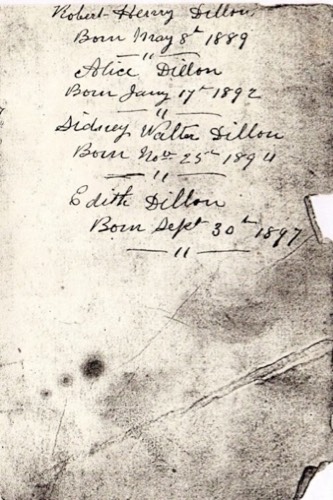 Robert Henry Dillon
Born May 8th 1889
— " —
Alice Dillon
Born Jany 17th 1892
— " —
Sidney Walter Dillon
Born Nov 25th 1894
— " —
Edith Dillon
Born Sept 30th 1897
— " —